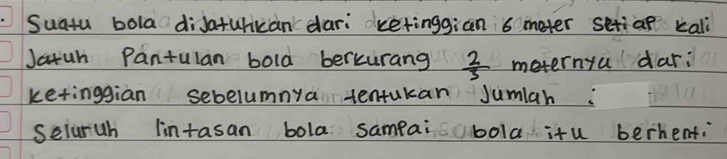 . Suatu bola dijatuhkan dari ketinggian 6 meter setiap kali
Jatuh Pantulan bola berkurang 2/3 meternya dari
ketinggian sebelumnya tentukan Jumlah :
Seluruh lintasan bola sampai bola itu berhenti